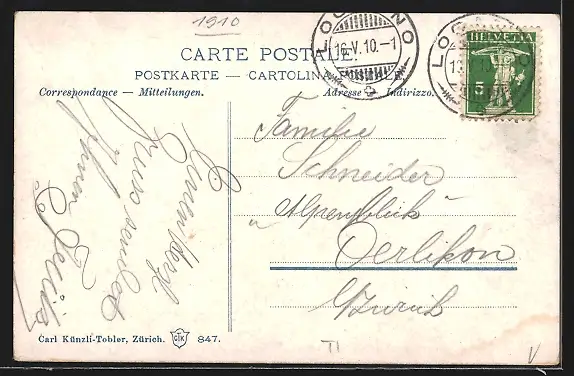 1910
LOCARNO
16.V.10.–1
LOCARNO
HELVETIA
5
CARTE POSTALE.
POSTKARTE — CARTOLINA POSTALE.
Correspondance — Mitteilungen.
Adresse — Indirizzo.
Familie
Schneider
„Alpenblick"
Oerlikon
Zürich
Gruss sendet
Ihnen
Carl Künzli-Tobler, Zürich.
847.
TI
V